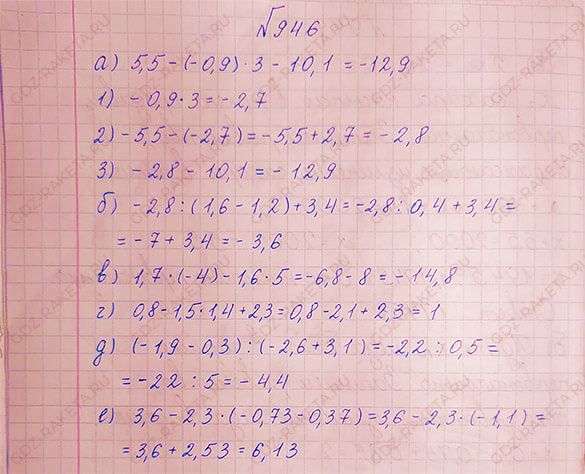 №946
а) 5,5 - (-0,9) · 3 - 10,1 = -12,9
1) - 0,9 · 3 = - 2,7
2) - 5,5 - (- 2,7) = - 5,5 + 2,7 = - 2,8
3) - 2,8 - 10,1 = - 12,9
б) -2,8 : (1,6 - 1,2) + 3,4 = -2,8 : 0,4 + 3,4 =
= - 7 + 3,4 = - 3,6
в) 1,7 · (-4) - 1,6 · 5 = -6,8 - 8 = - 14,8
г) 0,8 - 1,5 · 1,4 + 2,3 = 0,8 - 2,1 + 2,3 = 1
д) (-1,9 - 0,3) : (-2,6 + 3,1) = -2,2 : 0,5 =
= -22 : 5 = - 4,4
е) 3,6 - 2,3 · (-0,73 - 0,37) = 3,6 - 2,3 · (-1,1) =
= 3,6 + 2,53 = 6,13
GDZ-RAKETA.RU